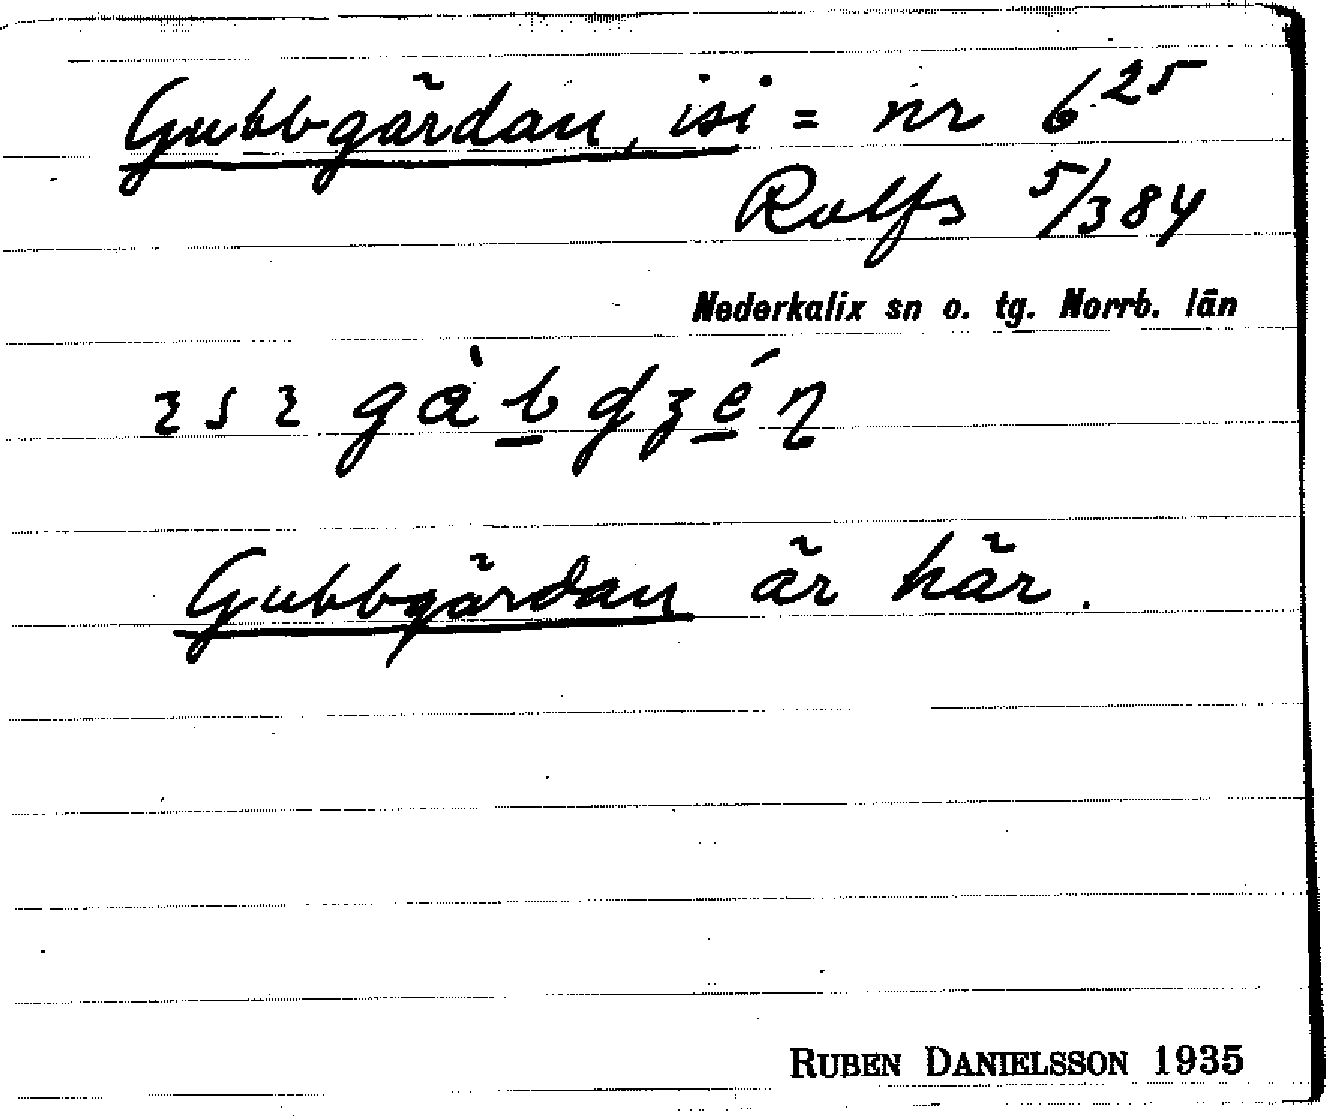 Gubbgärdan, isi = nr 6²⁵
Rolfs 5/384
Nederkalix sn o. tg. Norrb. län
Gubbgärdan är här.
RUBEN DANIELSSON 1935